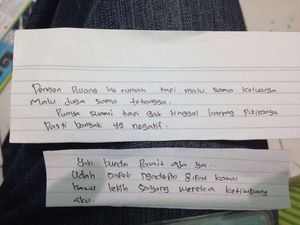 Pengen Pulang ke rumah tapi malu sama keluarga
Malu juga sama tetangga.
Punya suami tapi gak tinggal bareng Pikiranya
Pasti banyak yg negatif.
Yah bunda Pamit aja ya...
Udah capek ngadepin sifat kamu
Kamu lebih sayang mereka ketimbang
aku.